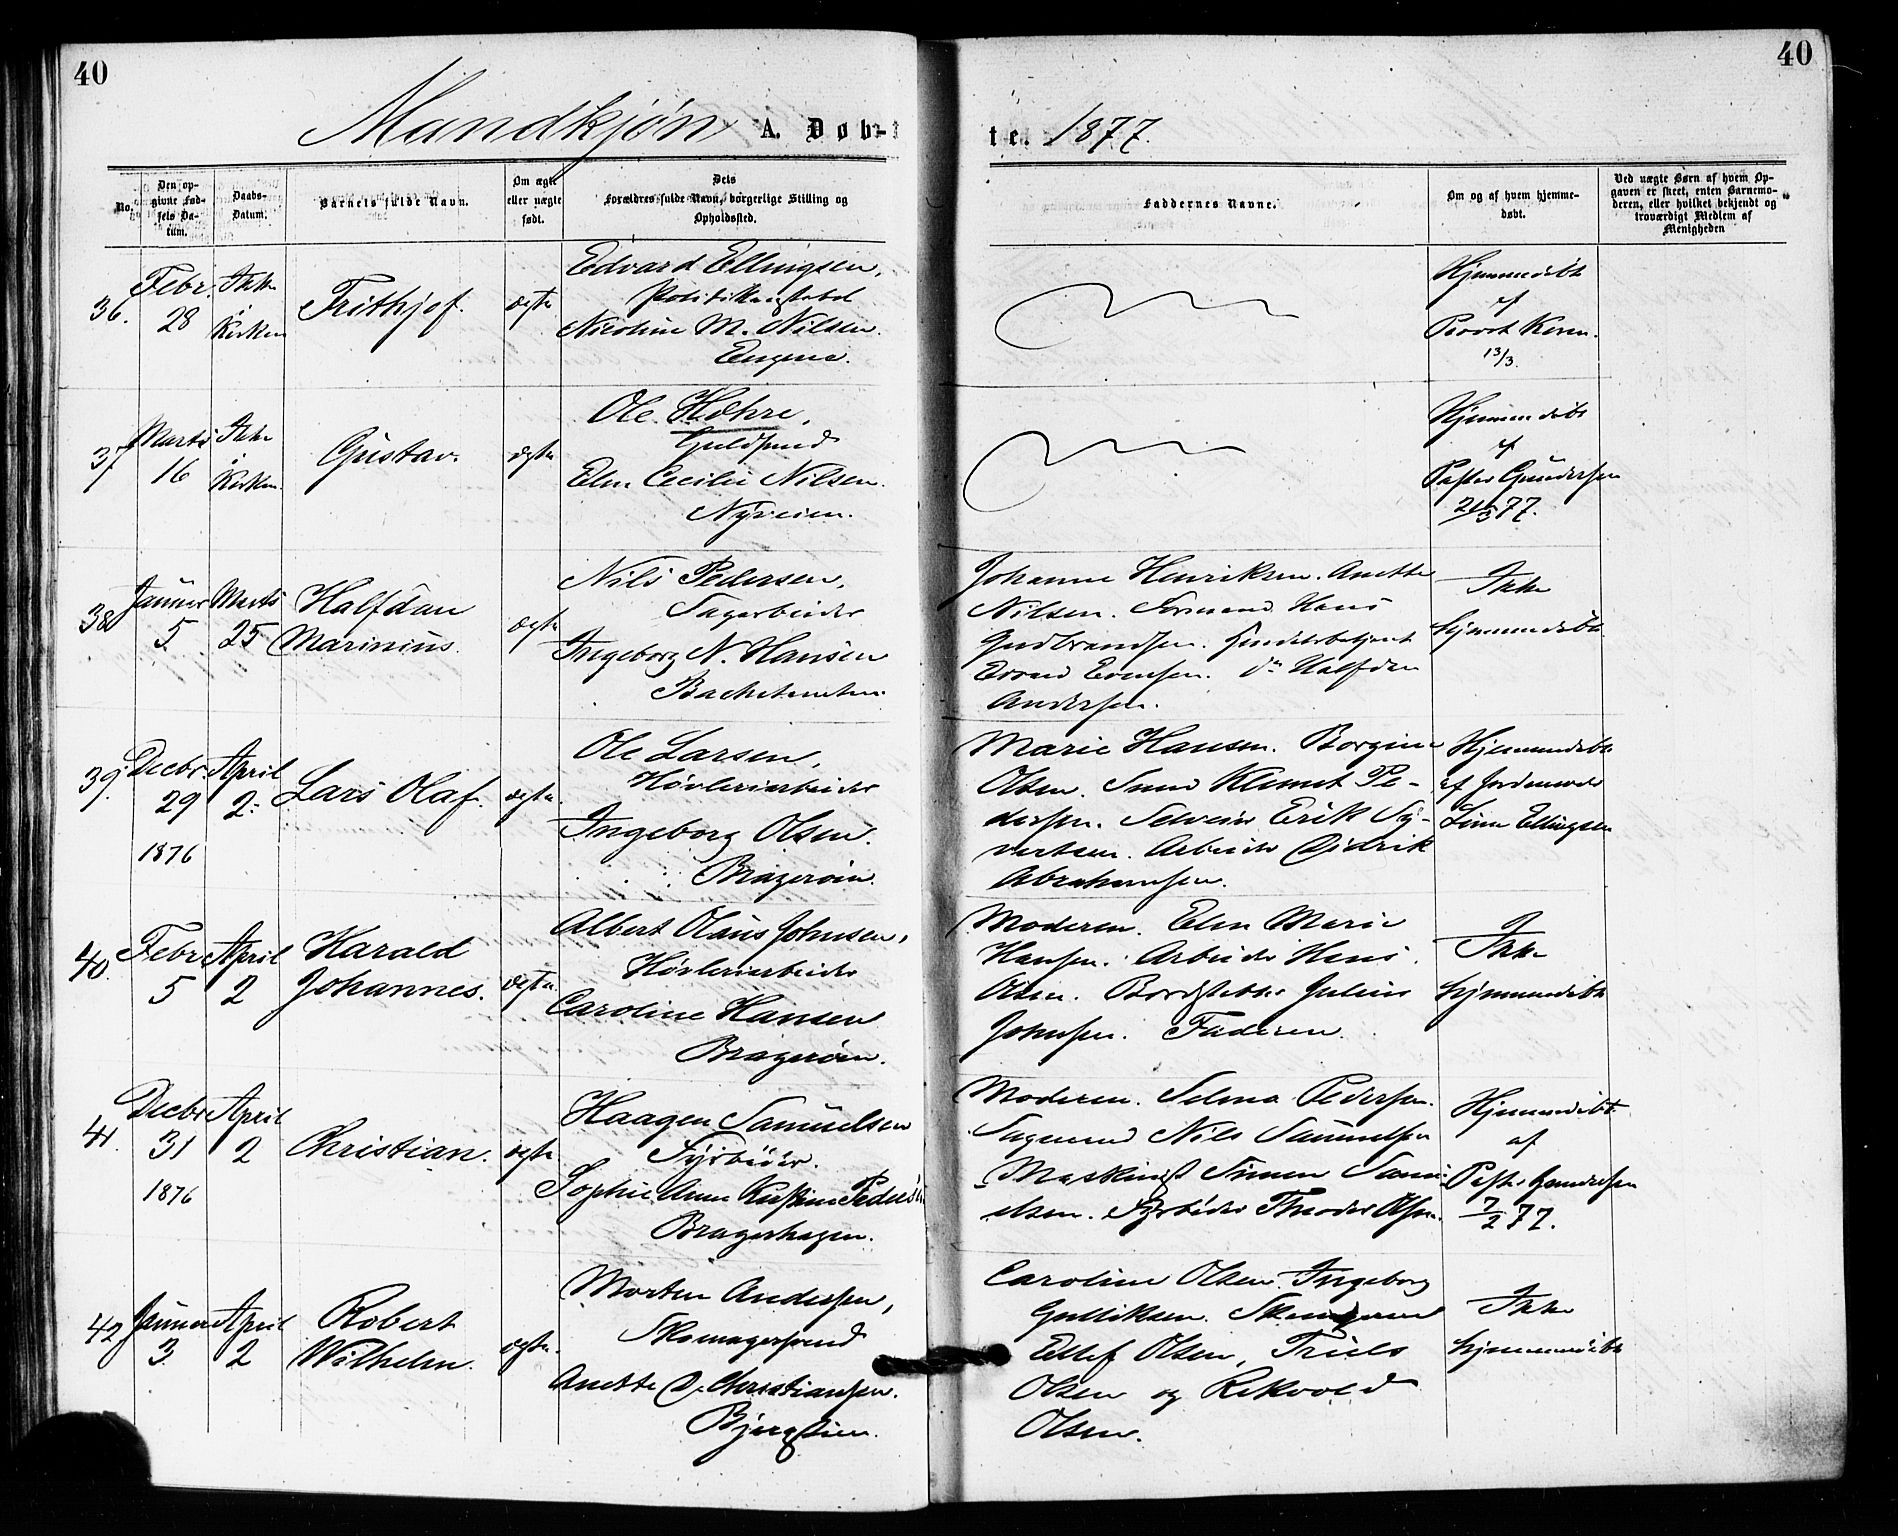 40
40
Mandkjøn A. Døb-
te. 1877.
No.
Den op-
givne Fød-
sels Da-
tum.
Daabs-
Datum.
Barnets fulde Navn.
Om ægte
eller uægte
født.
Dets
Forældres fulde Navn, borgerlige Stilling og
Opholdssted.
Faddernes Navne.
Om og af hvem hjemme-
døbt.
Ved uægte Børn af hvem Op-
gaven er skeet, enten Barnemo-
deren, eller hvilket bekjendt og
troværdigt Medlem af
Menigheden
36.
Febr.
28
Ikke
i
Kirken
Frithjof.
ægte
Edvard Ellingsen,
Politikonstabel
Nicoline M. Nilsen.
Engene.
Hjemmedøbt
af
Provst
13/3.
37
Marts
16
Ikke
i
Kirken.
Gustav.
ægte
Ole Hæhre,
Guldsmed
Elen Cecilie Nilsen.
Nyveien.
Hjemmedøbt
af
Pastor Gundersen
77.
38
Januar
5
Marts
25
Halfdan
Marinius.
ægte
Nils Pedersen,
Sagarbeider
Ingeborg N. Hansen
Johanne Henriksen. Anette
Nilsen. Formand Hans
Gudbrandsen. Handelsbetjent
Evensen. do Halfdan
Andersen.
Ikke
hjemmedøbt
39.
Decbr.
29
1876
April
2.
Lars Olaf.
ægte.
Ole Larsen,
Høvleriarbeider
Ingeborg Olsen.
Bragerøen.
Marie Hansen. Borgine
Olsen. Klemet Pe-
dersen. Erik Sy-
vertsen. Arbeider Didrik
Abrahamsen.
Hjemmedøbt
af Jordemoder
Line Ellingsen
40.
Febr
5
April
2
Harald
Johannes.
ægte.
Albert Olaus Johnsen,
Høvleriarbeider
Caroline Hansen
Bragerøen.
Moderen. Elen Marie
Hansen. Arbeider Hans
Olsen. Bordstabler Julius
Johnsen. Faderen.
Ikke
hjemmedøbt
41.
Decbr
31
1876
April
2
Christian.
ægte
Haagen Samuelsen
Fyrbøder.
Sophie Anne Kirstine Pedersen
Bragerhagen.
Moderen. Selma Pedersen.
Sagmand Nils Samuelsen
Maskinist Simen Samu-
elsen. Fyrbøder Theodor Olsen.
Hjemmedøbt
af
Pastor Gundersen
7/2 77.
42
Januar
3.
April
2
Robert
Wilhelm.
ægte.
Morten Andersen,
Skomagersvend
Anette D. Christiansen.
Bjergstien.
Caroline Olsen. Ingeborg
Gulliksen.
Ellef Olsen, Truls
Olsen og Rekvold
Olsen.
Ikke
hjemmedøbt